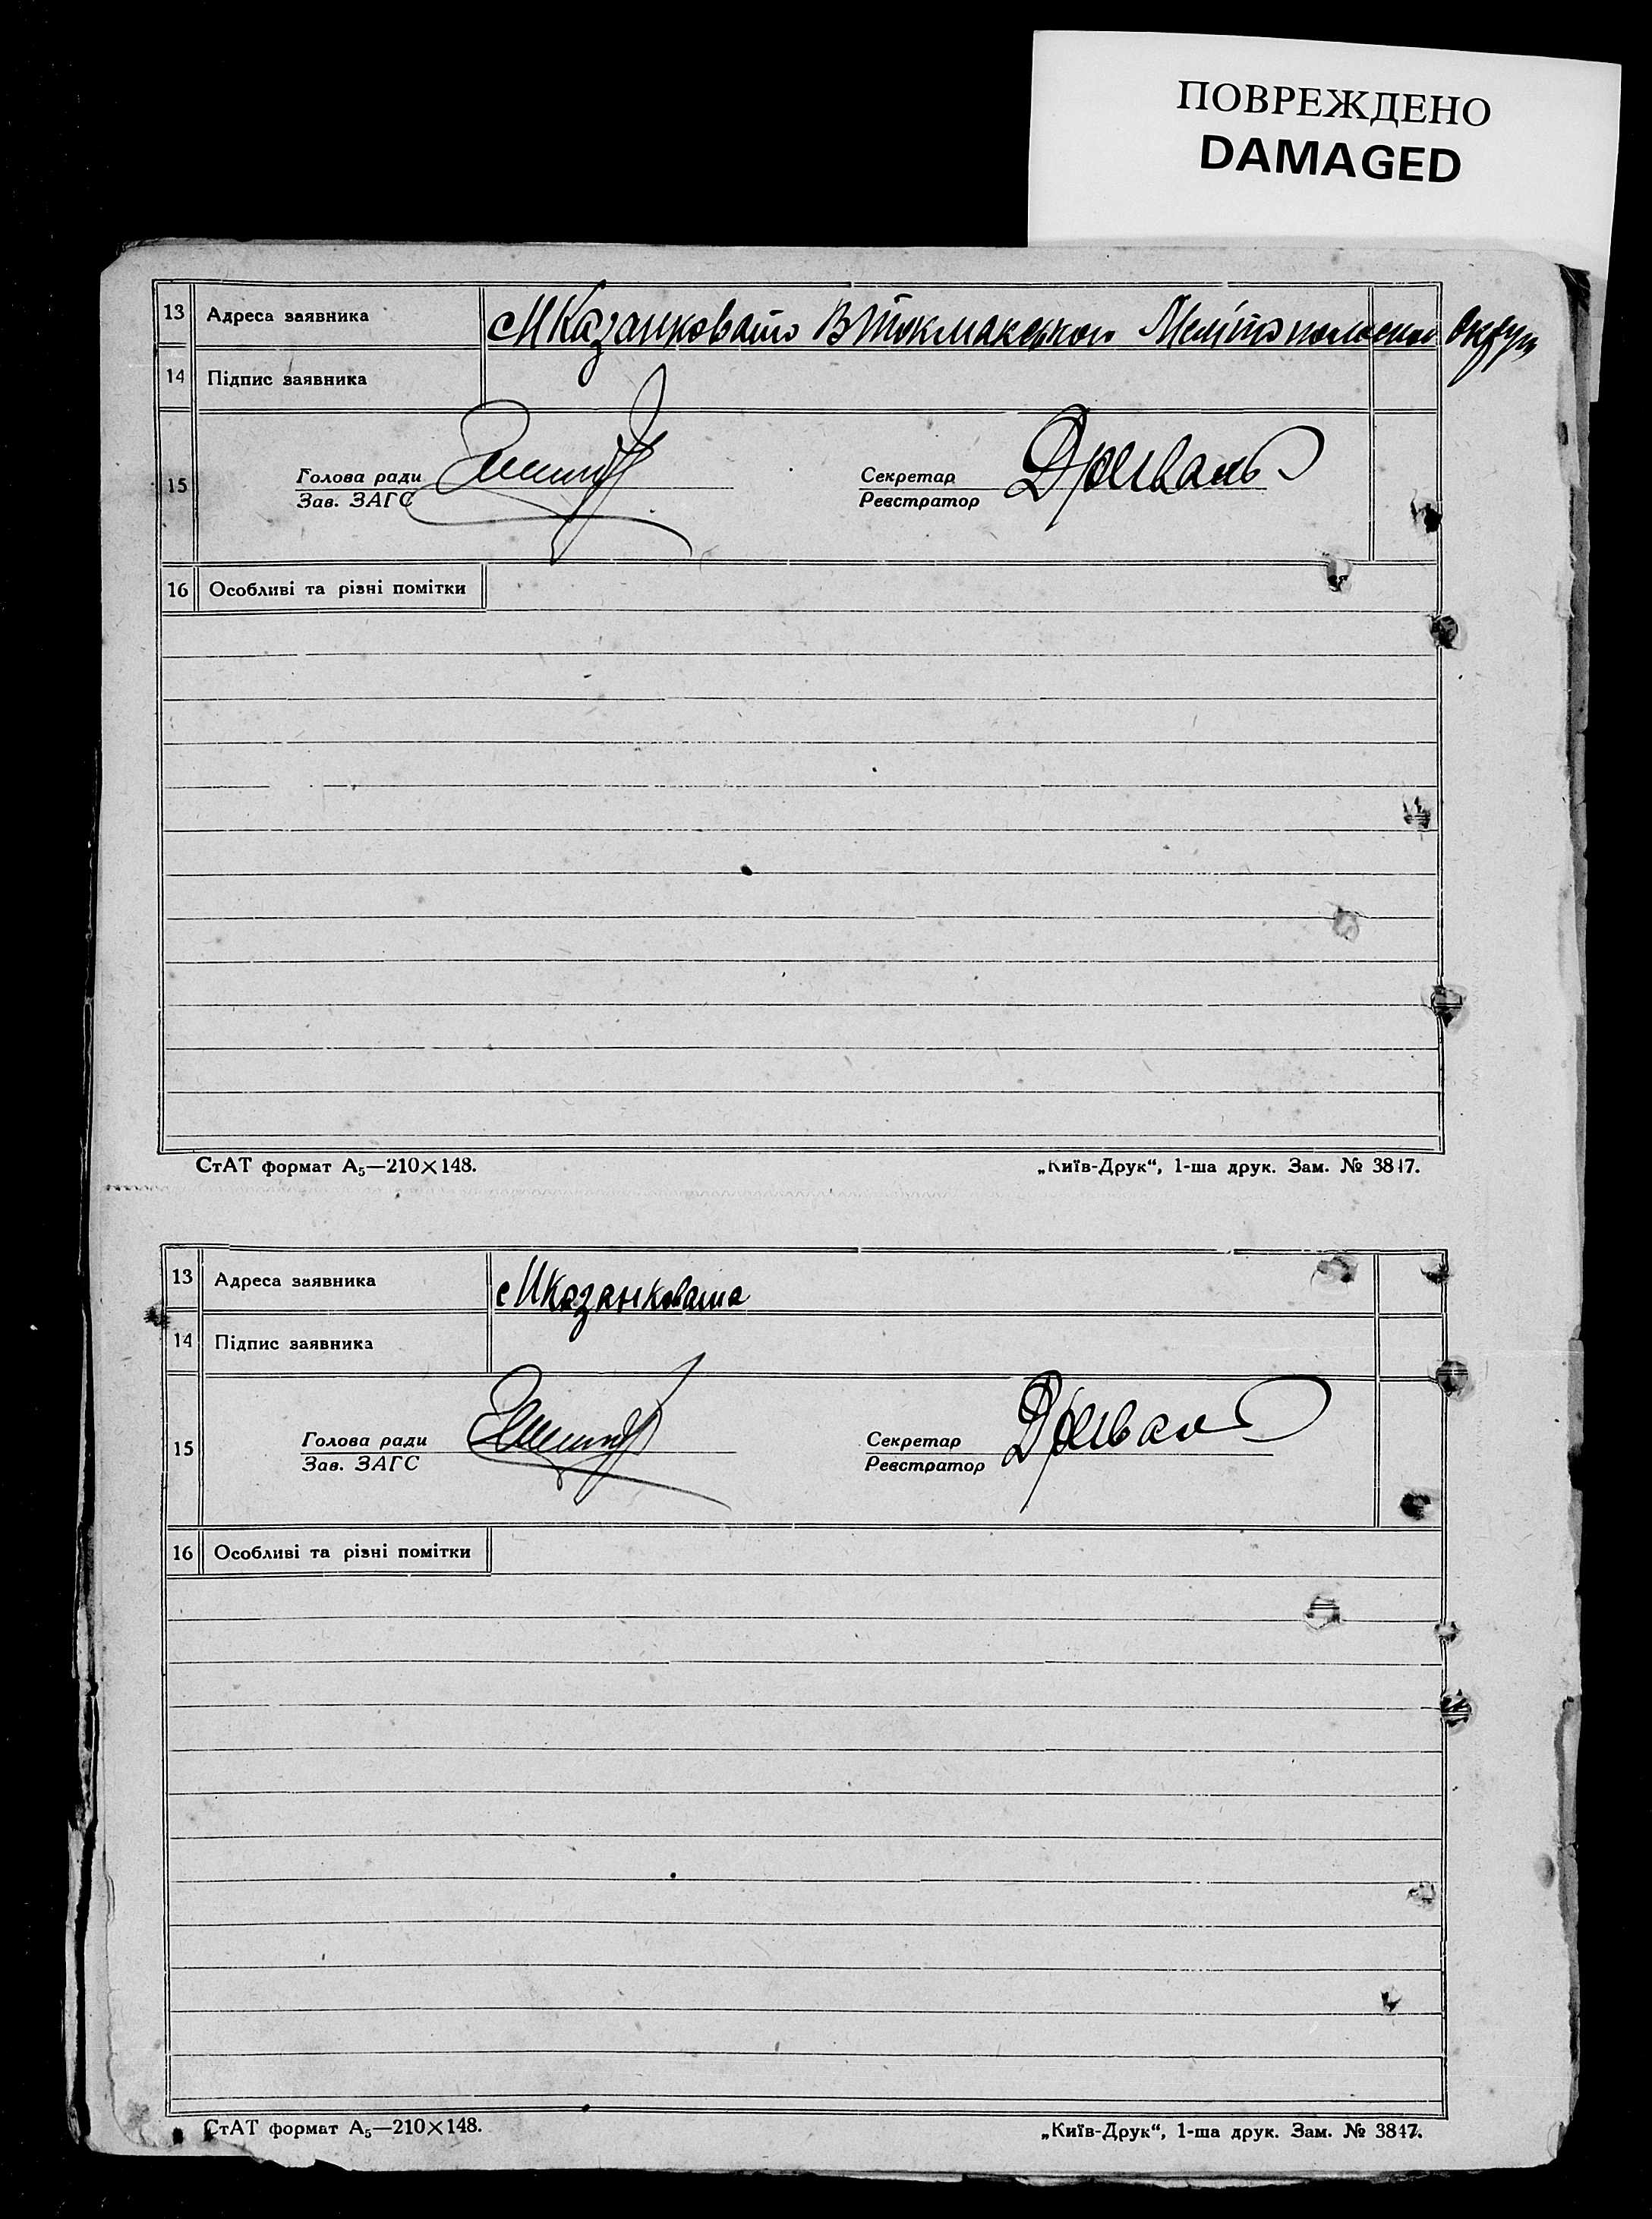 ПОВРЕЖДЕНО
DAMAGED
13 Адреса заявника с МКазанковато ВТокмакського Мелітопольської Округи
14 Підпис заявника
15 Голова ради Секретар Дриваль
Зав. ЗАГС Реєстратор
16 Особливі та різні помітки
СтАТ формат А5—210×148. „Київ-Друк“, 1-ша друк. Зам. № 3847.
13 Адреса заявника с Мказанковата
14 Підпис заявника
15 Голова ради Секретар Дриваль
Зав. ЗАГС Реєстратор
16 Особливі та різні помітки
СтАТ формат А5—210×148. „Київ-Друк“, 1-ша друк. Зам. № 3847.